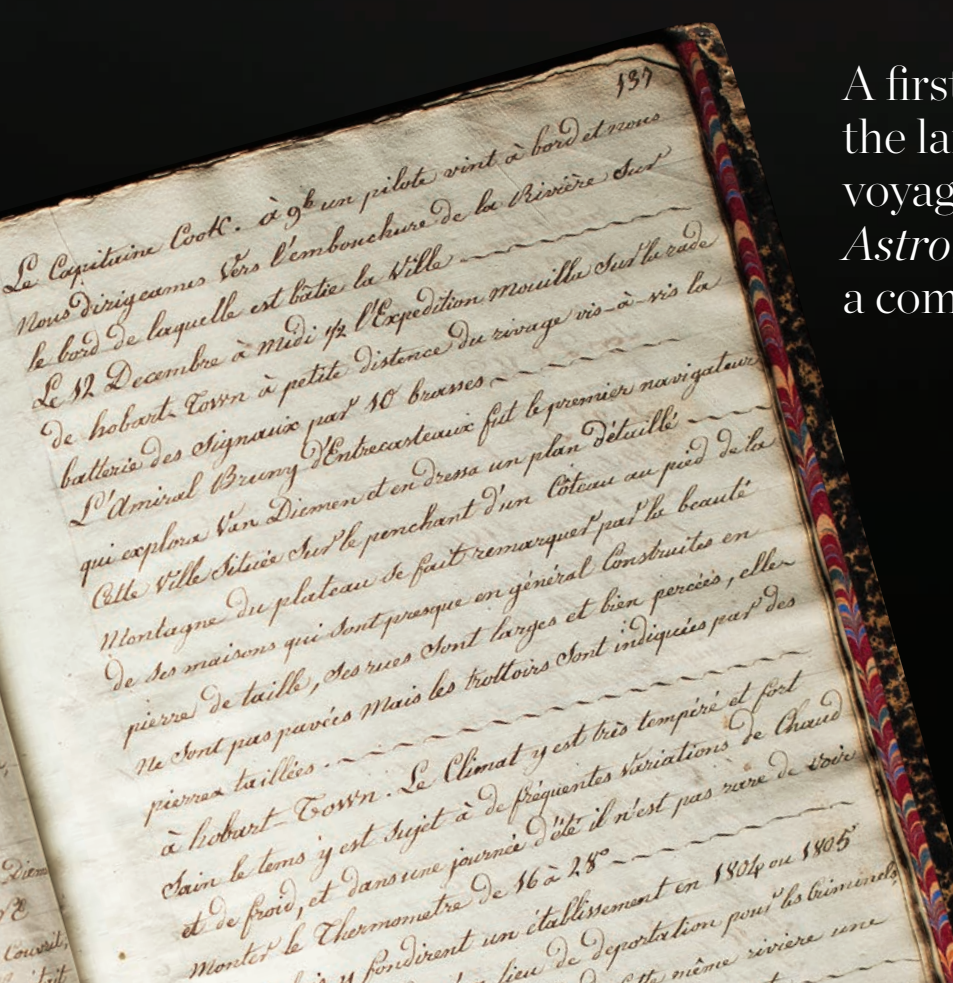 137
Le Capitaine Cook. à 9h un pilote vint à bord et nous
nous dirigeames Vers l'embouchure de la Rivière Sur
le bord de laquelle est bâtie la Ville
Le 12 Decembre à midi 1/2 l'Expedition mouilla Sur la rade
de hobart-Town à petite distence du rivage vis-à-vis la
batterie des Signaux par 10 brasses
L'Amiral Bruny d'Entrecasteaux fut le premier navigateur
qui explora Van Diemen et en dressa un plan Détaillé
Cette Ville Située Sur le penchant d'un Côteau au pied de la
Montagne du plateau se fait remarquer par la beauté
de ses maisons qui Sont presque en général Construites en
pierre de taille, ses rues Sont larges et bien percées, elles
ne Sont pas pavées Mais les trottoirs Sont indiqués par des
pierres taillées.
à hobart-Town. Le Climat y est très tempéré et fort
Sain le tems y est Sujet à de fréquentes Variations de Chaud
et de froid, et dans une journée d'été il n'est pas rare de voir
Monter le Thermometre de 16 à 28°
y fondirent un établissement en 1804 ou 1805
lieu de deportation pour les Criminels,
même rivière une
A first
the la
voyag
Astro
a com
Diem
Couvrit,